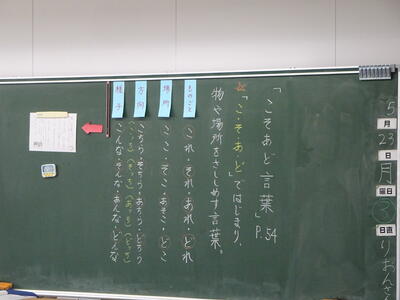 5
月
23
日
月
曜日
日直
りおんさん
「こそあど言葉」P.54
☆「こ・そ・あ・ど」ではじまり、
物や場所をさししめす言葉。
ものごと
これ・それ・あれ・どれ
場所
ここ・そこ・あそこ・どこ
方向
こちら・そちら・あちら・どちら
(こっち)(そっち)(あっち)(どっち)
様子
こんな・そんな・あんな・どんな